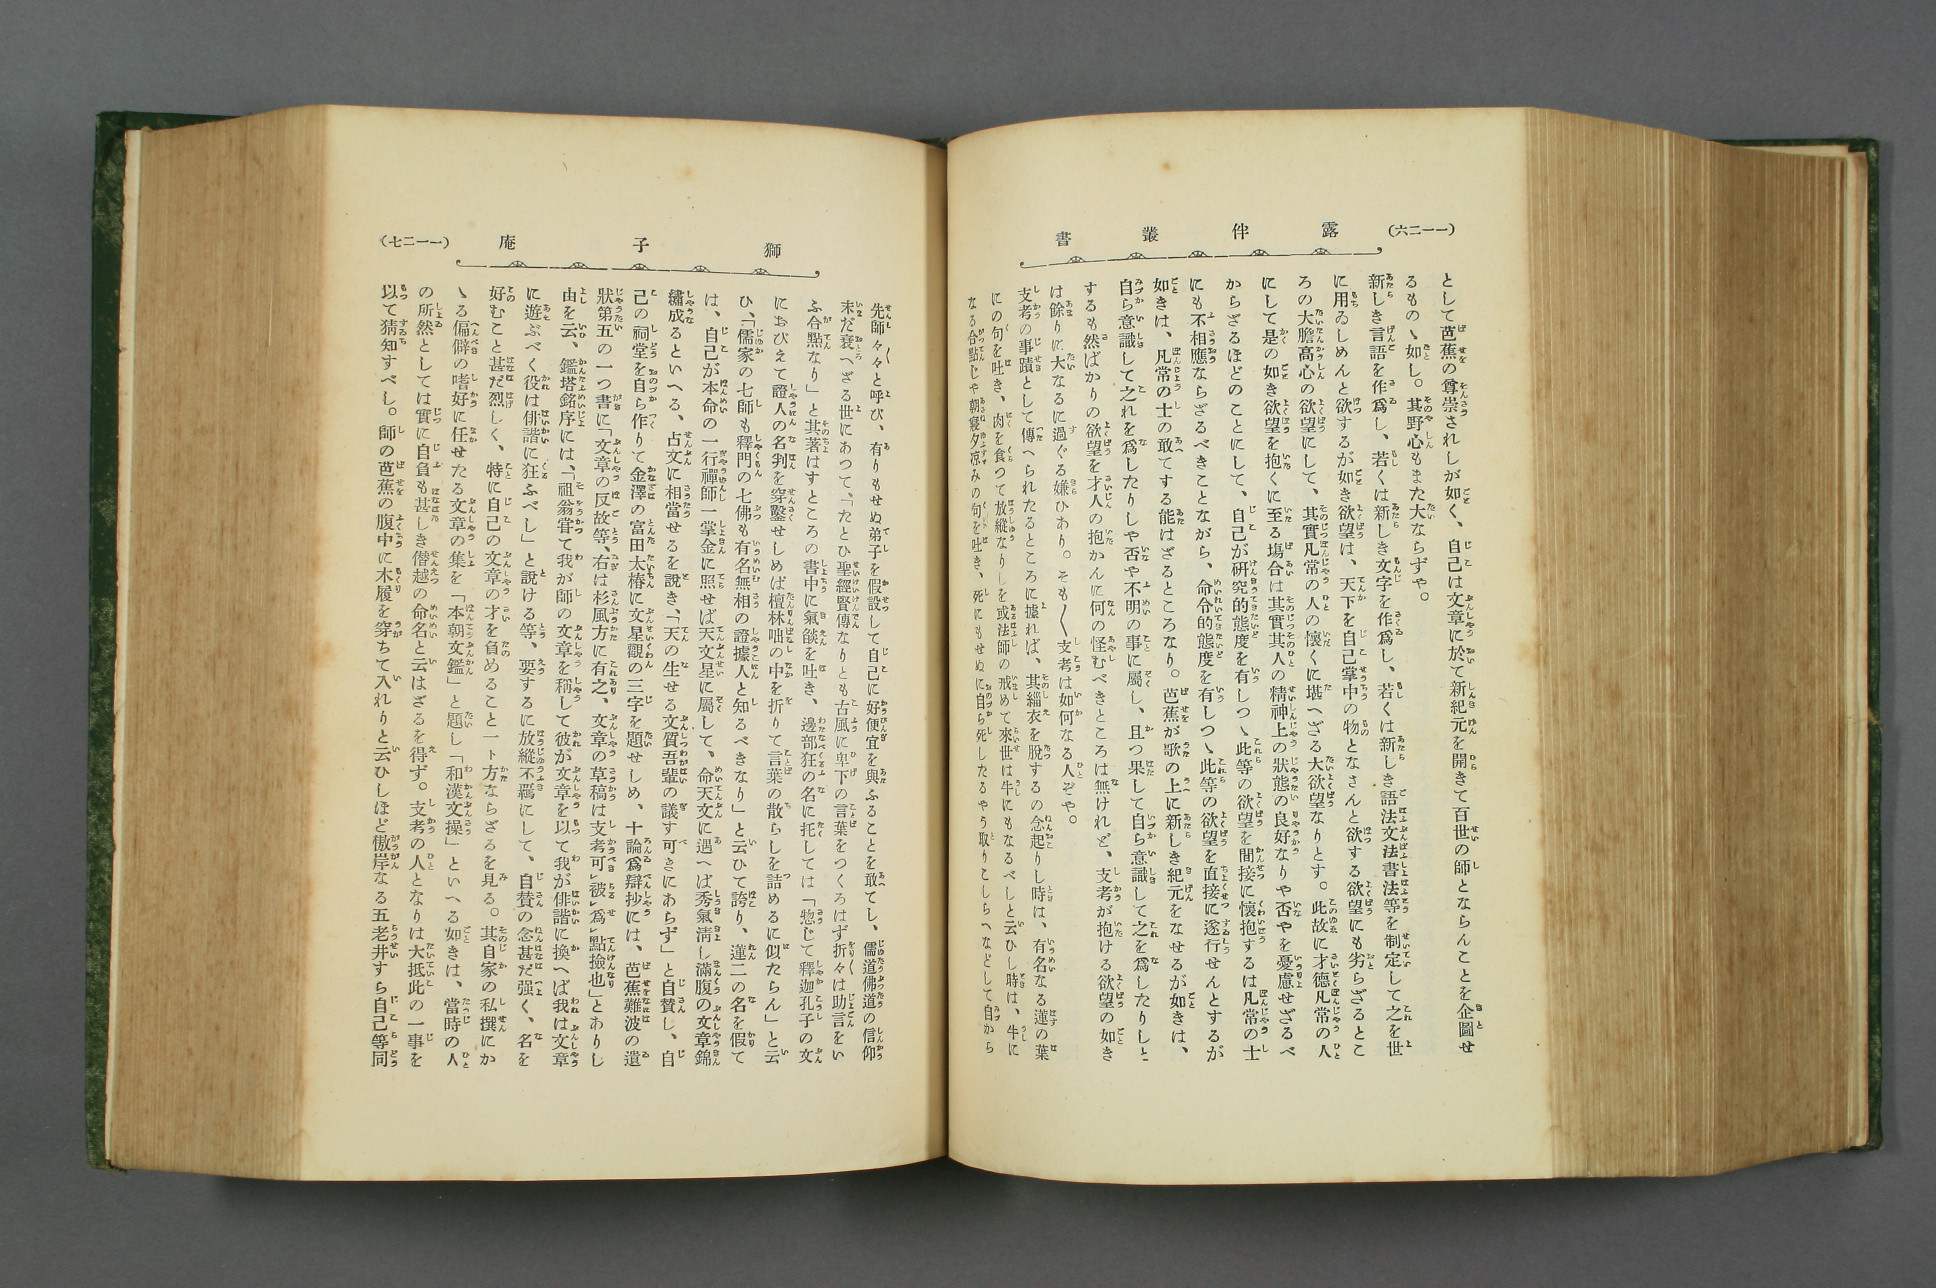 (一一二六)
露伴叢書
として芭蕉の尊崇されしが如く、自己は文章に於て新紀元を開きて百世の師とならんことを企圖せ
るものゝ如し。其野心もまた大ならずや。
新しき言語を作爲し、若くは新しき文字を作爲し、若くは新しき語法文法書法等を制定して之を世
に用ゐしめんと欲するが如き欲望は、天下を自己掌中の物となさんと欲する欲望にも劣らざるとこ
ろの大膽高心の欲望にして、其實凡常の人の懷くに堪へざる大欲望なりとす。此故に才德凡常の人
にして是の如き欲望を抱くに至る塲合は其實其人の精神上の狀態の良好なりや否やを憂慮せざるべ
からざるほどのことにして、自己が硏究的態度を有しつゝ此等の欲望を間接に懷抱するは凡常の士
にも不相應ならざるべきことながら、命令的態度を有しつゝ此等の欲望を直接に遂行せんとするが
如きは、凡常の士の敢てする能はざるところなり。芭蕉が歌の上に新しき紀元をなせるが如きは、
自ら意識して之れを爲したりしや否や不明の事に屬し、且つ果して自ら意識して之を爲したりしと
するも然ばかりの欲望を才人の抱かんに何の怪むべきところは無けれど、支考が抱ける欲望の如き
は餘りに大なるに過ぐる嫌ひあり。そも〳〵支考は如何なる人ぞや。
支考の事蹟として傳へられたるところに據れば、其緇衣を脫するの念起りし時は、有名なる蓮の葉
にの句を吐き、肉を食つて放縱なりしを或法師の戒めて來世は牛にもなるべしと云ひし時は、牛に
なる合點じや朝寢夕凉みの句を吐き、死にもせぬに自ら死したるやう取りこしらへなどして自から
(一一二七)
獅子庵
先師々々と呼び、有りもせぬ弟子を假設して自己に好便宜を與ふることを敢てし、儒道佛道の信仰
末だ衰へざる世にあつて、「たとひ聖經賢傳なりとも古風に卑下の言葉をつくろはず折々は助言をい
ふ合點なり」と其著はすところの書中に氣燄を吐き、邊部狂の名に托しては「惣じて釋迦孔子の文
におびえて證人の名判を穿鑿せしめば檀林咄の中を折りて言葉の散らしを詰めるに似たらん」と云
ひ、「儒家の七師も釋門の七佛も有名無相の證據人と知るべきなり」と云ひて誇り、蓮二の名を假て
は、自己が本命の一行禪師一掌金に照せば天文星に屬して、命天文に遇へば秀氣淸し滿腹の文章錦
繡成るといへる、占文に相當せるを說き、「天の生せる文質吾輩の議す可きにあらず」と自贊し、自
己の祠堂を自ら作りて金澤の富田太椿に文星觀の三字を題せしめ、十論爲辯抄には、芭蕉難波の遺
狀第五の一つ書に「文章の反故等、右は杉風方に有之、文章の草稿は支考可㆑被㆑爲㆓點撿㆒也」とありし
由を云、鑑塔銘序には、「祖翁甞て我が師の文章を稱して彼が文章を以て我が俳諧に換へば我は文章
に遊ぶべく役は俳諧に狂ふべし」と說ける等、要するに放縱不羈にして、自贊の念甚だ强く、名を
好むこと甚だ烈しく、特に自己の文章の才を負めること一ト方ならざるを見る。其自家の私撰にか
ゝる偏僻の嗜好に任せたる文章の集を「本朝文鑑」と題し「和漢文操」といへる如きは、當時の人
の所然としては實に自負も甚しき僭越の命名と云はざるを得ず。支考の人となりは大抵此の一事を
以て猜知すべし。師の芭蕉の腹中に木履を穿ちて入れりと云ひしほど傲岸なる五老井すら自己等同